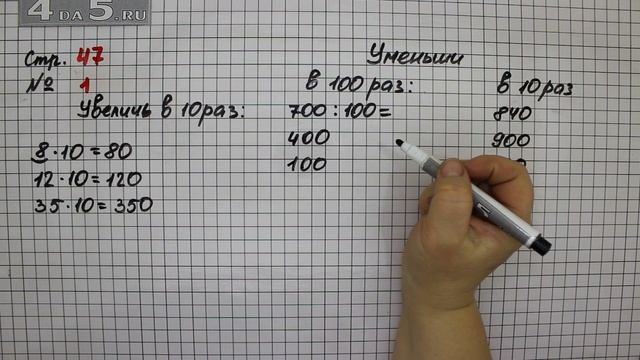 4 DA 5.RU
Стр. 47
№ 1
Увеличь в 10 раз:
8 · 10 = 80
12 · 10 = 120
35 · 10 = 350
Уменьши
в 100 раз:
700 : 100 =
400
100
в 10 раз
840
900